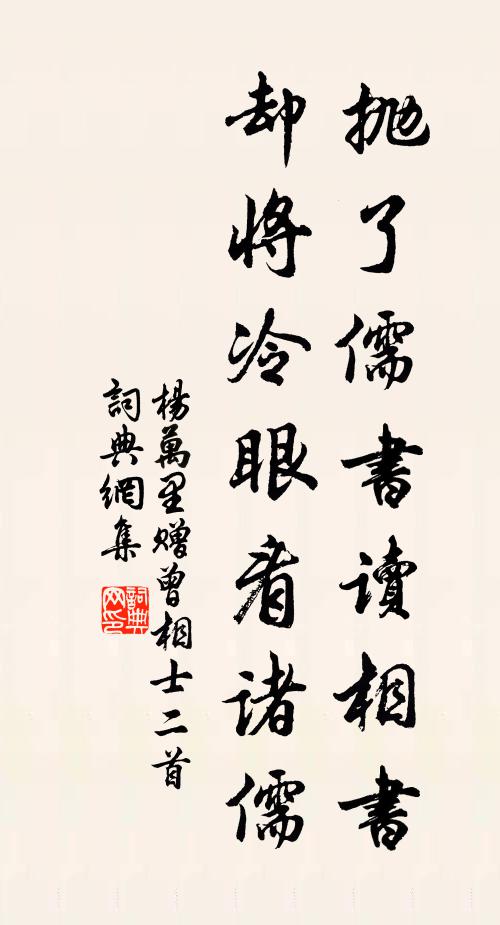 抛了儒書读相書
却将冷眼看诸儒
楊萬里赠曾相士二首
詞典網集
詞典网印